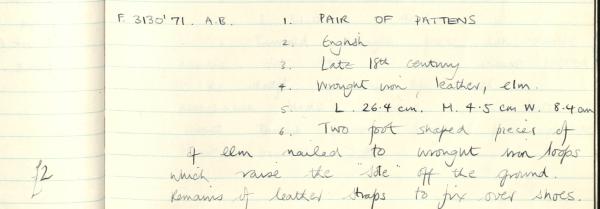 F. 3130'71. A.B. 1. PAIR OF PATTENS
2. English
3. Late 18th century
4. Wrought iron, leather, elm.
5. L. 26.4 cm. H. 4.5 cm W. 8.4 cm
6. Two foot shaped pieces of
of elm nailed to wrought iron loops
which raise the "sole" off the ground.
Remains of leather straps to fix over shoes.
£2